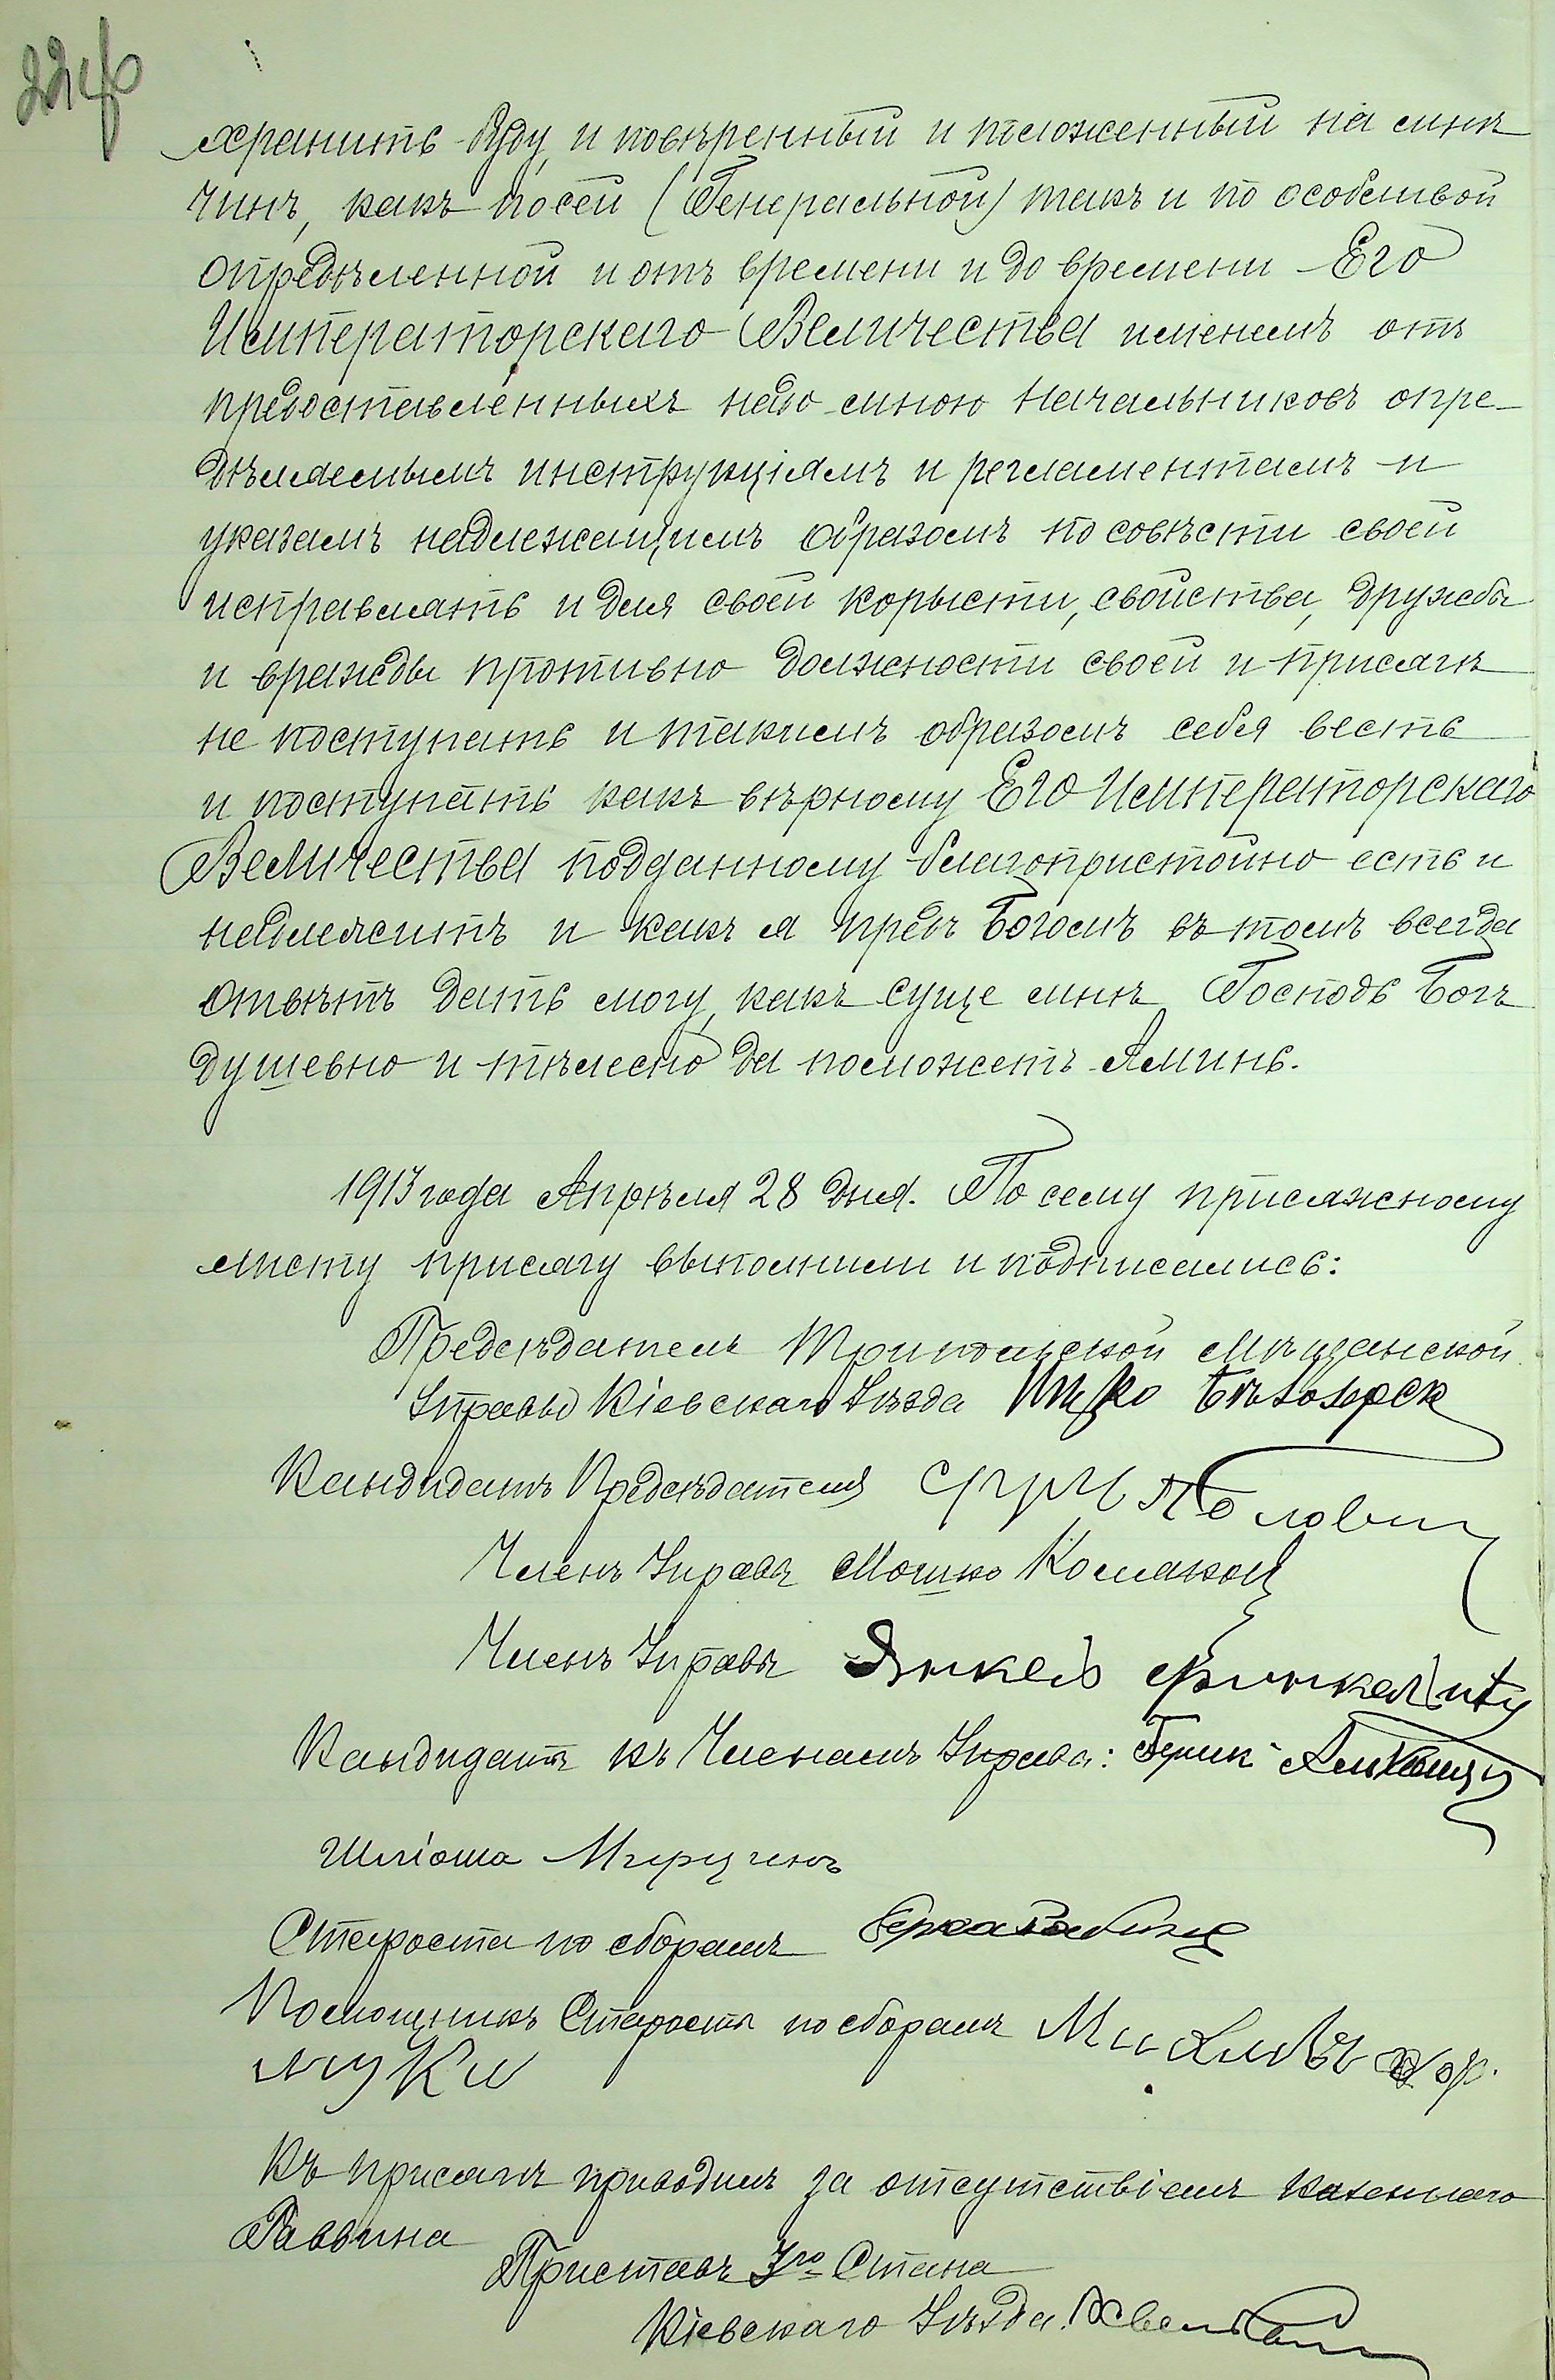 хранить буду, и повѣренный и положенный на мнѣ
чинъ, какъ посей (Генеральной) такъ и по особствой
опредѣленной и отъ времени и до времени Его
Императорскаго Величества именемъ отъ
предоставленныхъ надо мною начальниковъ опре-
дѣляемымъ инструкціямъ и регламентамъ и
указамъ надлежащимъ образомъ по совѣсти своей
исправлять и для своей корысти, свойства, дружбы
и вражды противно должности своей и присягѣ
не поступать и такимъ образомъ себя весть
и поступать какъ вѣрному Его Императорскаго
Величества подданному благопристойно есть и
надлежитъ и какъ я предъ Богомъ въ томъ всегда
отвѣтъ дать могу, какъ суще мнѣ Господь Богъ
душевно и тѣлесно да поможетъ Аминь.
1913 года Апрѣля 28 дня. По сему присяжному
листу присягу выполнили и подписались:
Предсѣдатель Трипольской Мѣщанской
Управы Кіевскаго Уѣзда Ицко
Кандидатъ Предсѣдателя
Членъ Управы Мошко
Членъ Управы Янкель
Кандидатъ къ Членамъ Управы:
Шліома
Староста по сборамъ
Помощникъ Старосты по сборамъ
Къ присягѣ приводилъ за отсутствіемъ казеннаго
Раввина
Приставъ 3го Стана
Кіевскаго Уѣзда